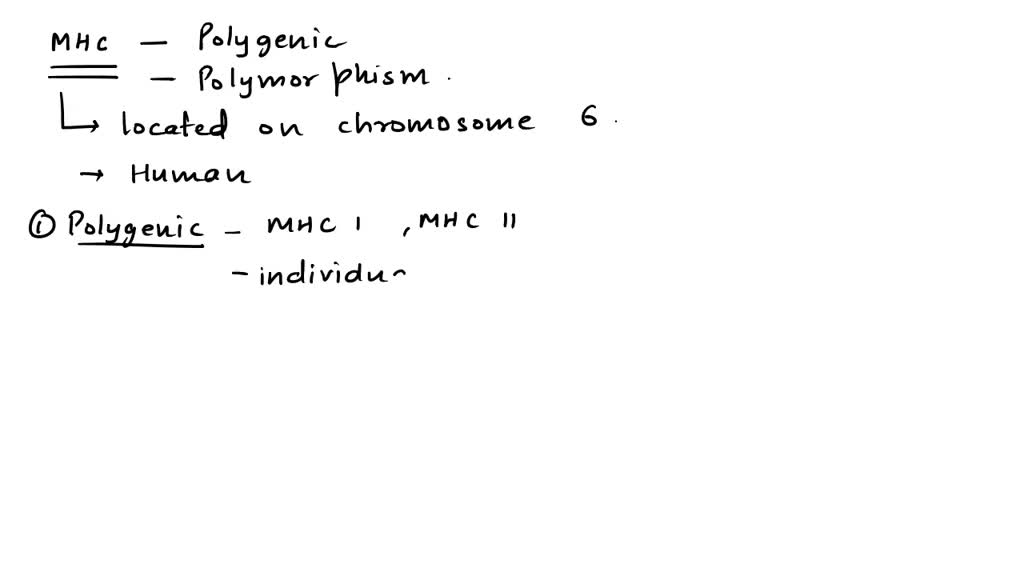 MHC - Polygenic
- Polymorphism.
↳ located on chromosome 6.
→ Human
① Polygenic - MHC I, MHC II
- individu